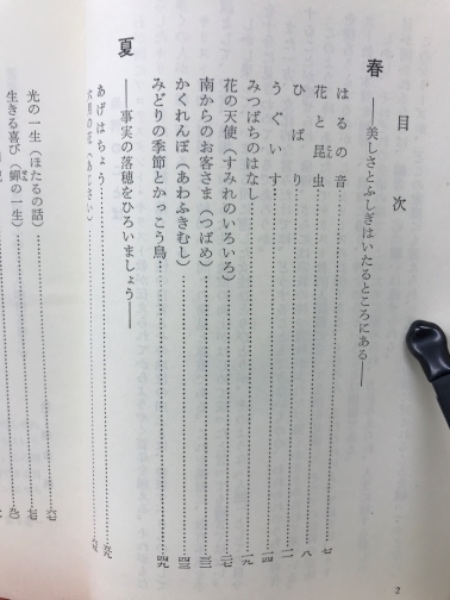 目次
春
――美しさとふしぎはいたるところにある――
はるの音……七
花と昆虫……八
ひばり……一一
うぐいす……一四
みつばちのはなし……一九
花の天使（すみれのいろいろ）……二七
南からのお客さま（つばめ）……三三
かくれんぼ（あわふきむし）……四三
みどりの季節とかっこう鳥……四九
夏
――事実の落穂をひろいましょう――
あげはちょう
光の一生（ほたるの話）
生きる喜び（蟬の一生）
2